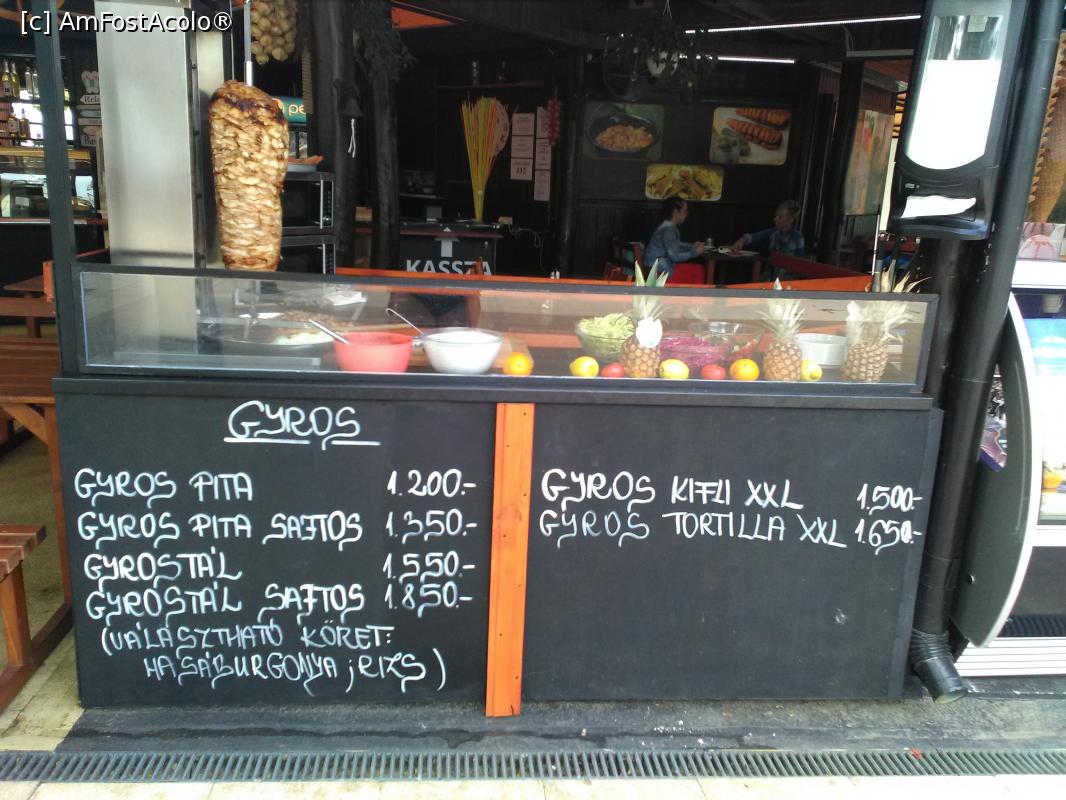 [c] AmFostAcolo®
KASSZA
GYROS
GYROS PITA 1.200.-
GYROS PITA SAJTOS 1.350.-
GYROSTÁL 1.550.-
GYROSTÁL SAJTOS 1.850.-
(VÁLASZTHATÓ KÖRET:
HASÁBURGONYA ; RIZS)
GYROS KIFLI XXL 1.500.-
GYROS TORTILLA XXL 1.650.-